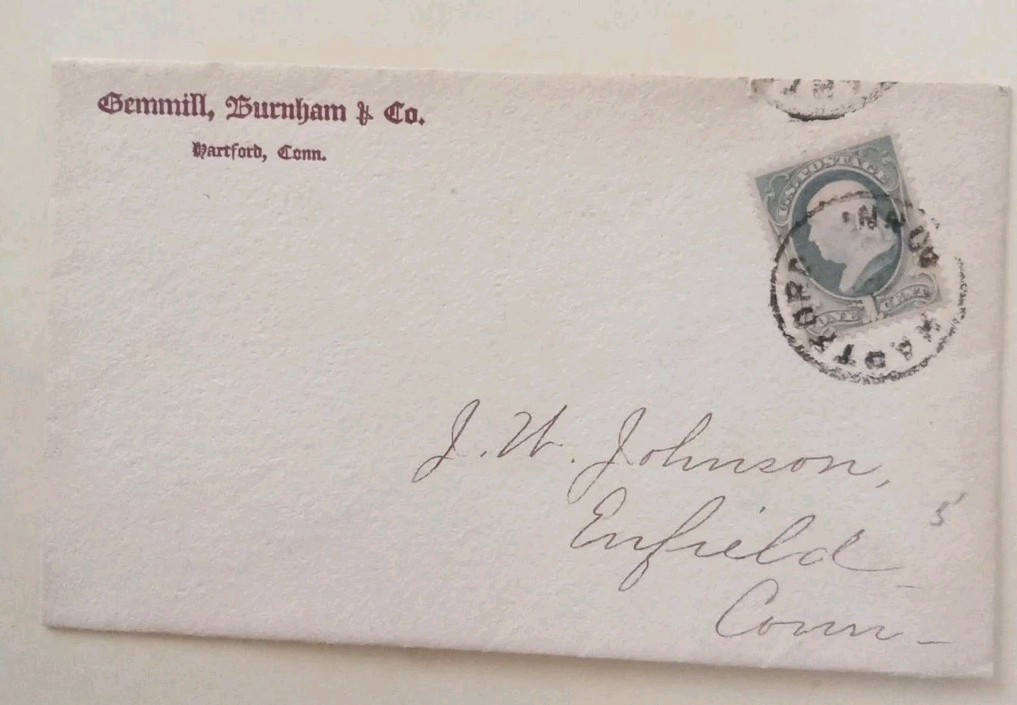 Gemmill, Burnham & Co.
Hartford, Conn.
U.S. POSTAGE
ONE 1 CENT
HARTFORD CONN
J. W. Johnson,
Enfield
Conn
5